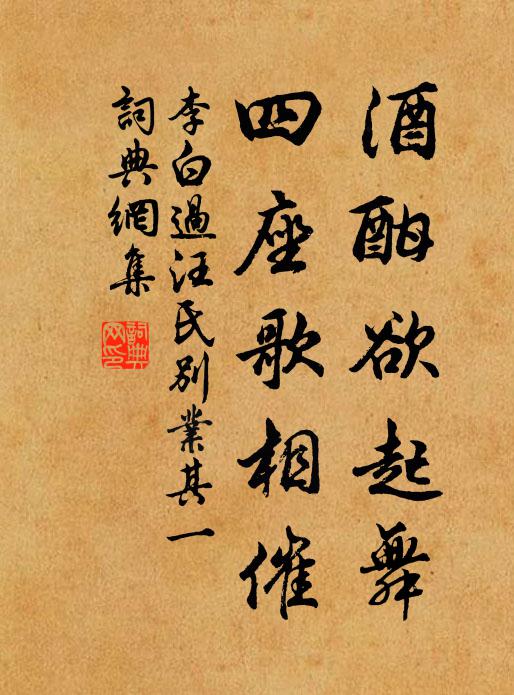 酒酣欲起舞
四座歌相催
李白過汪氏別業其一
詞典網集
詞典网印